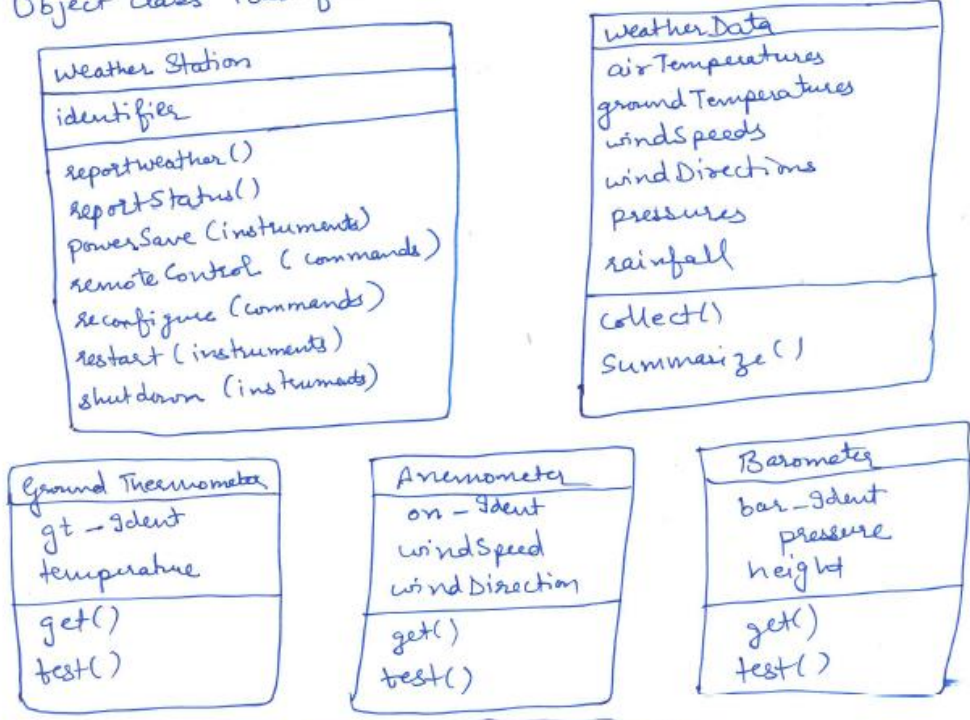 Object class
Weather Station
identifier
reportWeather()
reportStatus()
powerSave (instruments)
remoteControl (commands)
reconfigure (commands)
restart (instruments)
shutdown (instruments)
WeatherData
airTemperatures
groundTemperatures
windSpeeds
windDirections
pressures
rainfall
collect()
Summarize()
Ground Thermometer
gt_Ident
temperature
get()
test()
Anemometer
an_Ident
windSpeed
windDirection
get()
test()
Barometer
bar_Ident
pressure
height
get()
test()